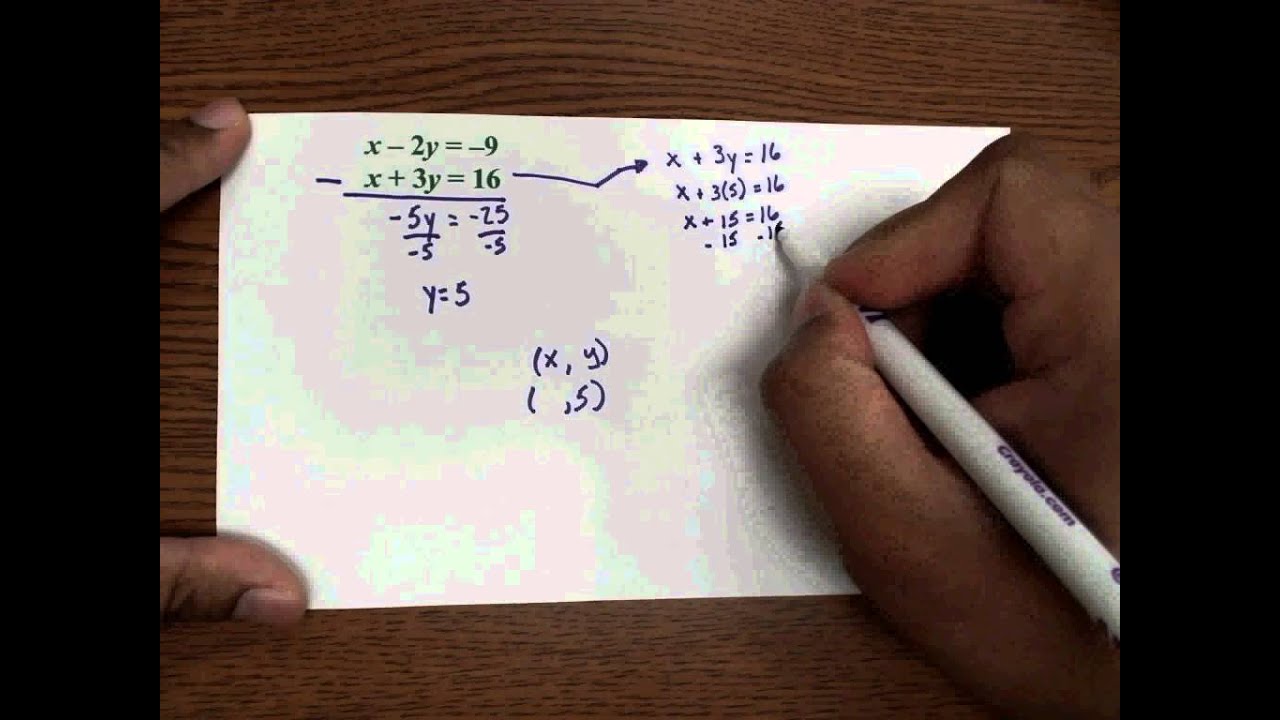 x – 2y = –9
– x + 3y = 16
-5y = -25
-5 -5
y=5
(x, y)
( ,5)
x + 3y = 16
x + 3(5) = 16
x + 15 = 16
- 15
Crayola.com